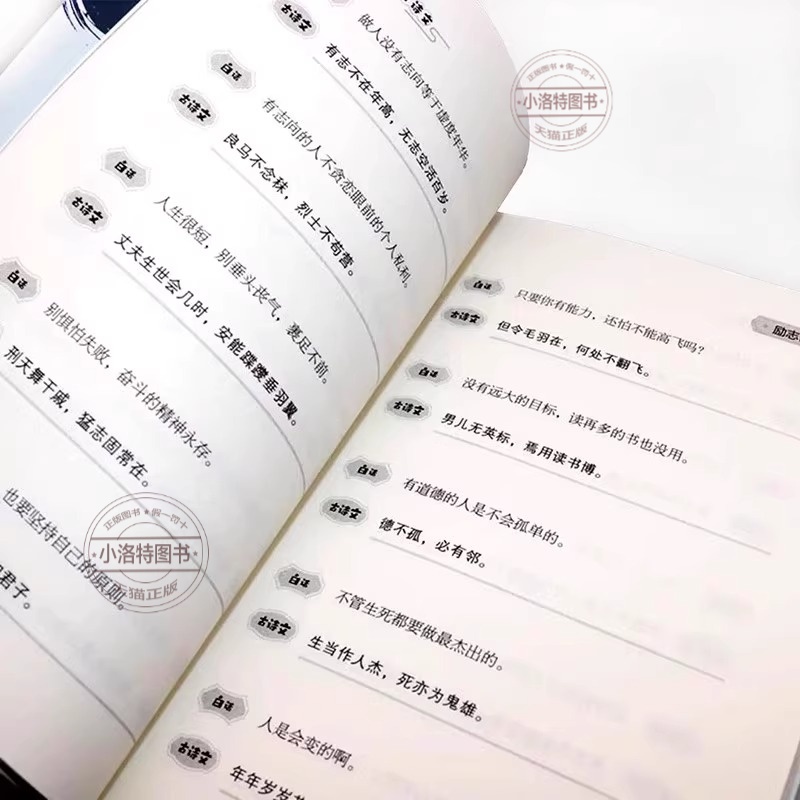 古诗文
古诗文
做人没有志向等于虚度年华。
有志不在年高，无志空活百岁。
白话
有志向的人不贪恋眼前的个人私利。
古诗文
良马不念秣，烈士不苟营。
白话
人生很短，别垂头丧气，裹足不前。
古诗文
丈夫生世会几时，安能蹀躞垂羽翼。
白话
别惧怕失败，奋斗的精神永存。
刑天舞干戚，猛志固常在。
也要坚持自己的原则。
君子。
励志
白话
只要你有能力，还怕不能高飞吗？
古诗文
但令毛羽在，何处不翻飞。
白话
没有远大的目标，读再多的书也没用。
古诗文
男儿无英标，焉用读书博。
白话
有道德的人是不会孤单的。
古诗文
德不孤，必有邻。
白话
不管生死都要做最杰出的。
古诗文
生当作人杰，死亦为鬼雄。
白话
人是会变的啊。
古诗文
年年岁岁
正版图书★假一罚十
小洛特图书
天猫正版
正版图书★假一罚十
小洛特图书
天猫正版